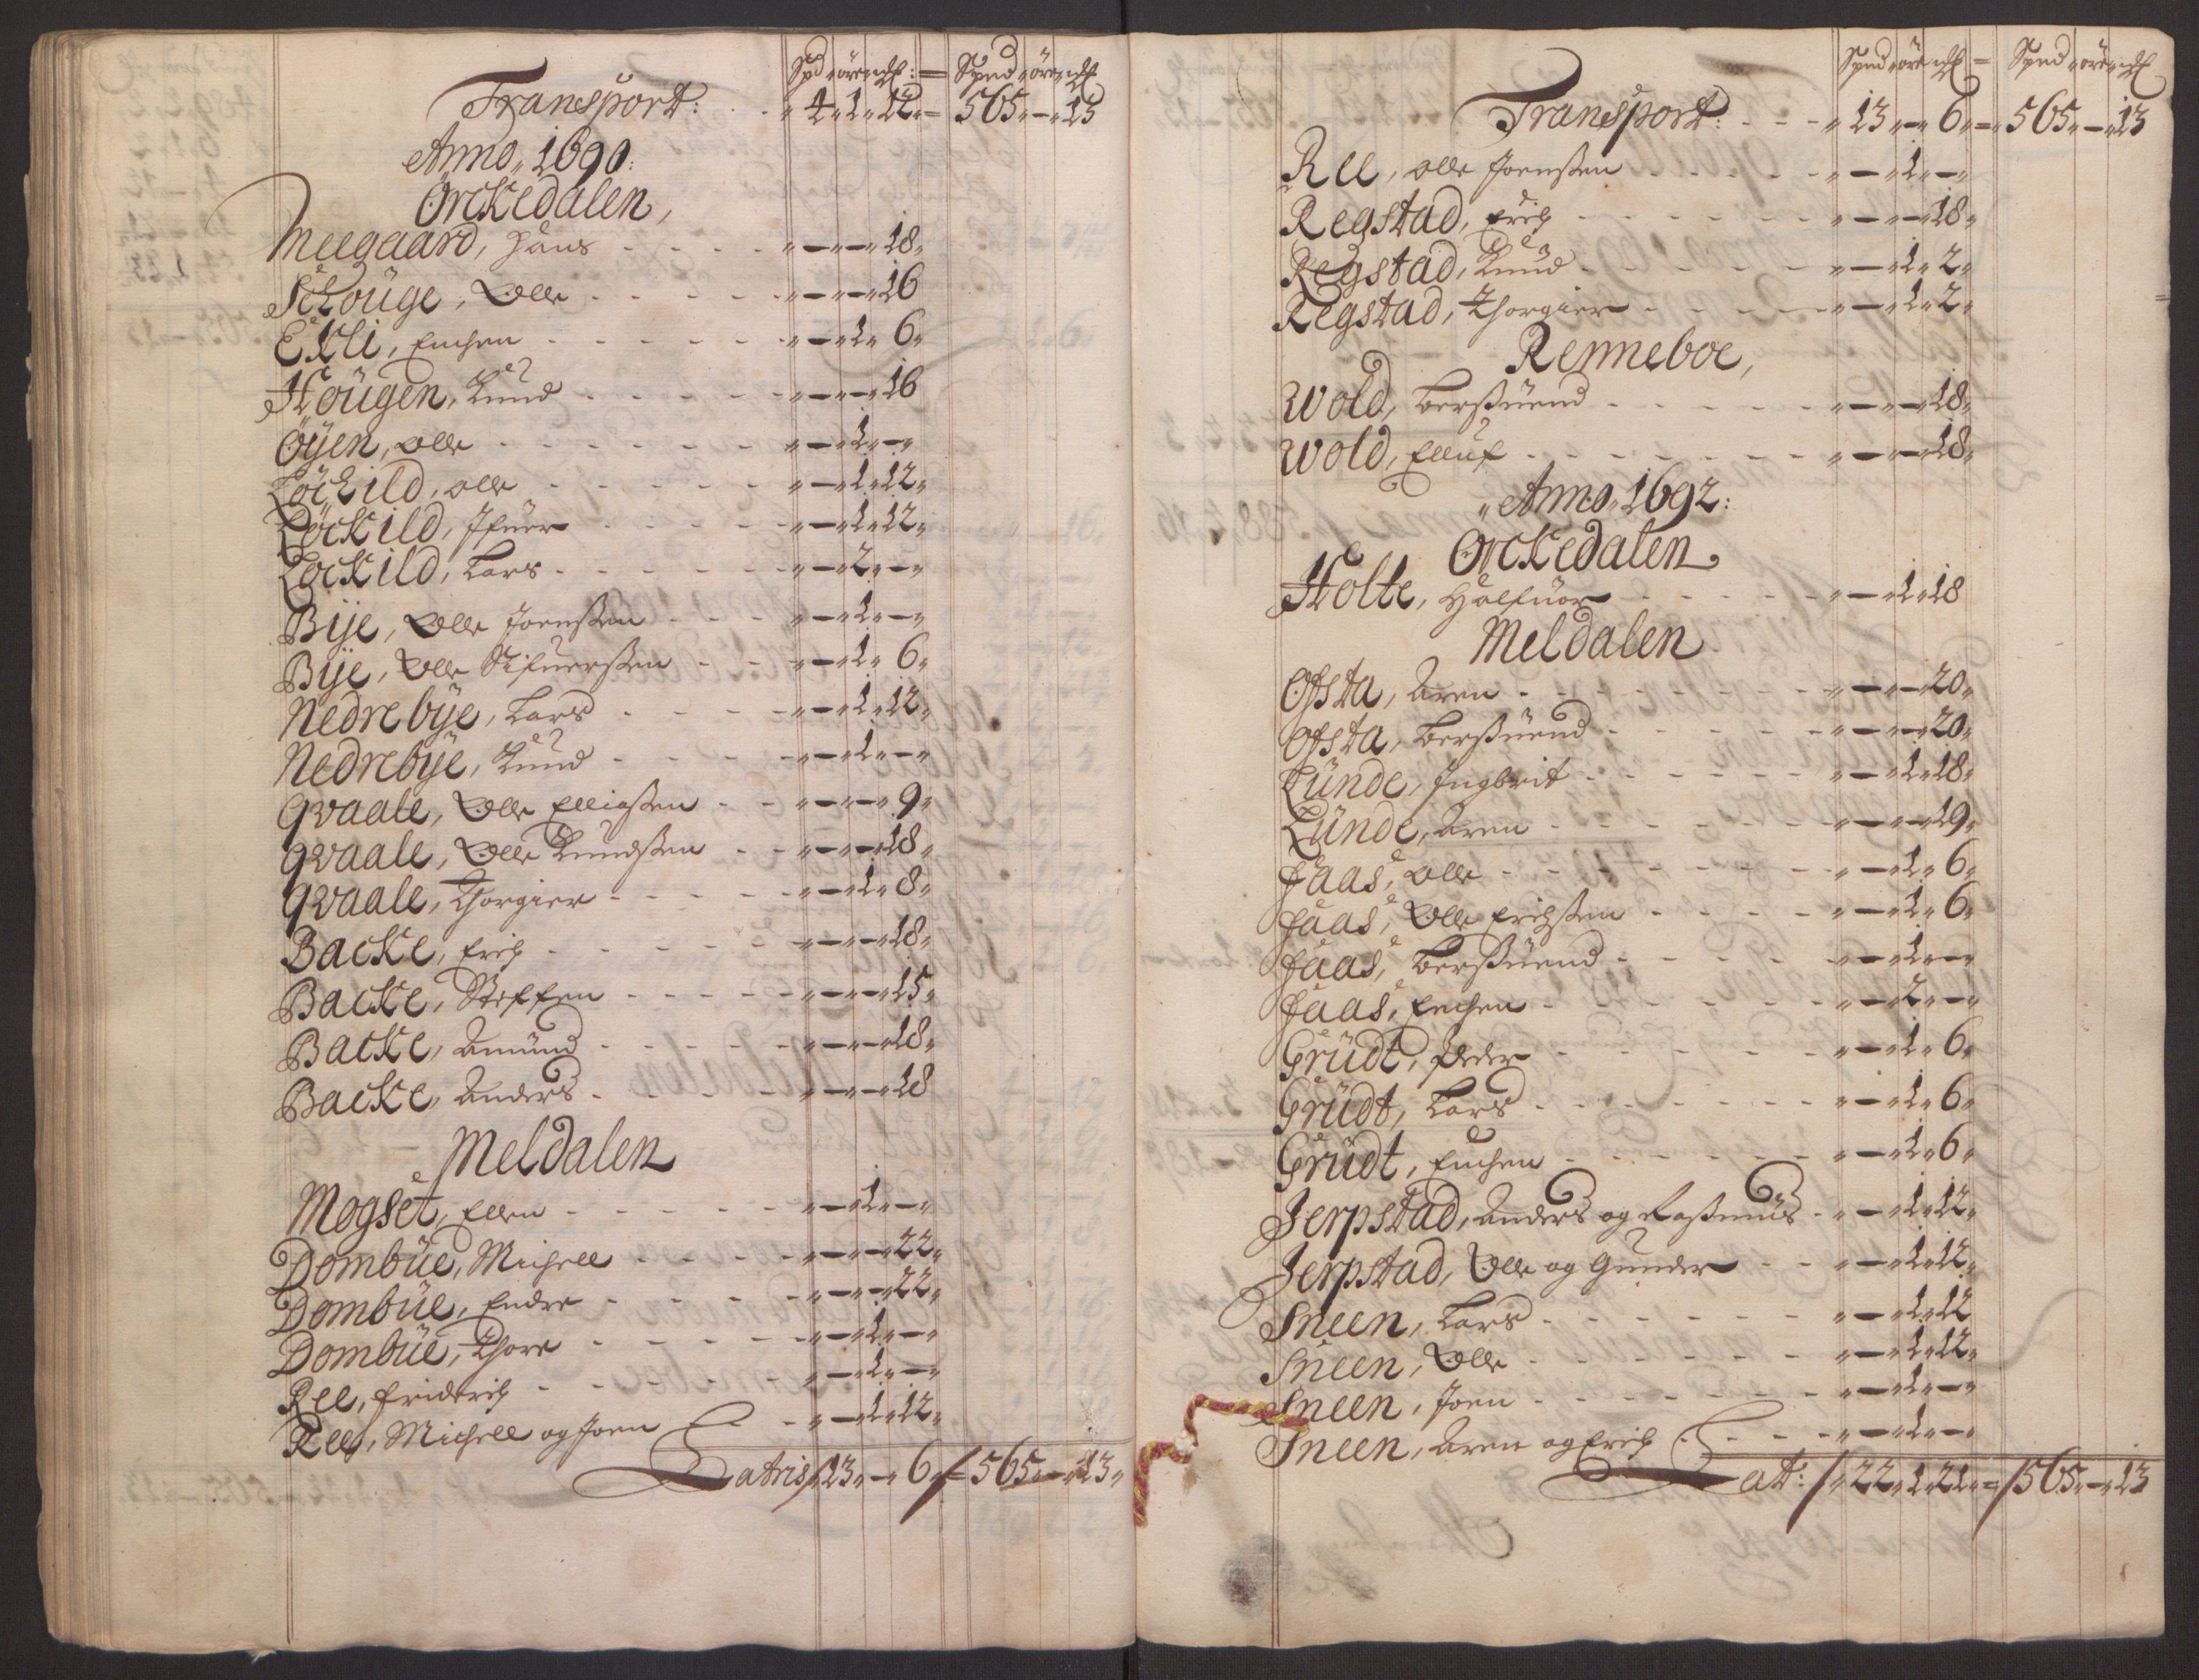 Spd „ ört „ ₰ : = Spnd „ ört „ ₰
Transport: „ 4 „ 1 „ 12 „ = 565 „ — „ 13
Anno „ 1690:
Örckedalen,
Meegaard, Hans - - - - „ — „ — „ 18 „
Schoüge, Olle - - - - „ — „ — „ 16
Ekli, Enchen - - - - „ — „ 1 „ 6 „
Hoügen, Knud - - - - „ — „ — „ 16
Öyen, olle - - - - „ — „ 1 „ — „
Löckild, olle - - - - „ — „ 1 „ 12 „
Löckild, Ifuer - - - - „ — „ 1 „ 12 „
Löckild, Lars - - - - „ — „ 2 „ — „
Bÿe, Olle Joensßen - - - „ — „ 1 „ — „
Bÿe, Olle Sifuersßen - - „ — „ 1 „ 6 „
Nedrebÿe, Lars - - - - „ — „ 1 „ 12 „
Nedrebÿe, Knud - - - - „ — „ 1 „ — „
Qvaale, Olle Elliaßen - - „ — „ — „ 9 „
Qvaale, Olle Knudsßen - - „ — „ — „ 18 „
Qvaale, Thorgier - - - - „ — „ 1 „ 8 „
Backe, Erich - - - - „ — „ — „ 18 „
Backe, Steffen - - - - „ — „ — „ 15 „
Backe, Amünd - - - - „ — „ — „ 18 „
Backe, Anders - - - - „ — „ — „ 18
Meldalen
Mogset, Ellen - - - - „ — „ 1 „ — „
Dombüe, Michell - - - - „ — „ — „ 22 „
Dombüe, Endre - - - - „ — „ — „ 22 „
Dombüe, Thore - - - - „ — „ 1 „ — „
Ree, Friderich - - - - „ — „ 1 „ — „
Ree, Michell og Joen - - „ — „ 1 „ 12 „
Latris „ 13 „ — „ 6 „ = 565 „ — „ 13 „
Spnd „ ört „ ₰ = Spnd „ ört „ ₰
Transport: - - - „ 13 „ — „ 6 „ = „ 565 „ — „ 13
Ree, olle Joensßen - - - - „ — „ 1 „ — „
Regstad, Erich - - - - „ — „ — „ 18 „
Regstad, Knud - - - - „ — „ 1 „ 2 „
Regstad, Thorgier - - - - „ — „ 1 „ 2 „
Renneboe,
Wold, Berßüend - - - - „ — „ — „ 18 „
Wold, Elluf - - - - „ — „ — „ 18 „
„ Anno „ 1692:
Örckedalen
Holte, Halfuor - - - - „ — „ 1 „ 18
Meldalen
Ofsta, Aren - - - - „ — „ — „ 20 „
Ofsta, Berßüend - - - - „ — „ — „ 20 „
Lünde, Ingbrit - - - - „ — „ 1 „ 18 „
Lünde, Aren - - - - „ — „ — „ 19 „
Faas, olle - - - - „ — „ 1 „ 6 „
Faas, Olle Erichsßen - - - - „ — „ 1 „ 6 „
Faas, Berßüend - - - - „ — „ 1 „ — „
Faas, Enchen - - - - „ — „ 2 „ — „
Grüdt, Peder - - - - „ — „ 1 „ 6 „
Grüdt, Lars - - - - „ — „ 1 „ 6 „
Grüdt, Enchen - - - - „ — „ 1 „ 6 „
Jerpstad, Anders og Raßmus - „ — „ 1 „ 12 „
Jerpstad, Olle og Gunder - - „ — „ 1 „ 12 „
Sneen, Lars - - - - „ — „ 1 „ 12
Sneen, Olle - - - - „ — „ 1 „ 12 „
Sneen, Joen - - - - „ — „ 1 „ — „
Sneen, Aren og Erich - - - „ — „ 1 „ — „
Lat: „ 22 „ 1 „ 21 „ = 565 „ — „ 13